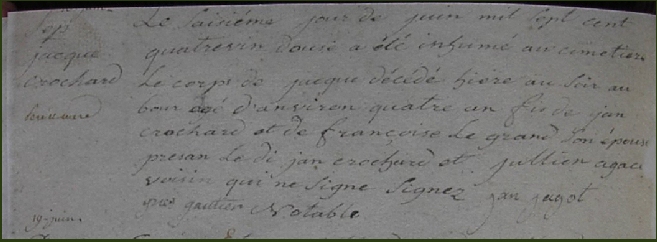 Sep
Le saisiéme jour de juin mil sept cent
jacque
quatrevin douse a été inhumé au cimetiere
crochard
Le corps de jacque décédé hière au soir au
bour agé d'anviron quatre an fis de jan
crochard et de françoise Le grand son épouse
presan Le di jan crochard et jullien agace
voisin qui ne signe Signez jan jugot
yves gautier Notable
19 juin